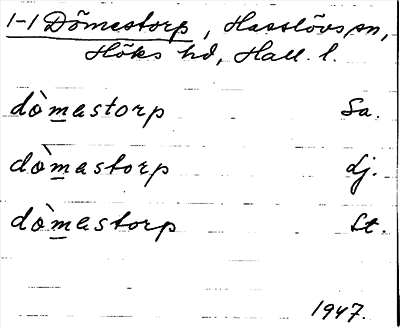 1-1 Dömestorp, Hasslövs sn,
Höks hd, Hall. l.
dò̀mastorp Sa.
dò̀mastorp Lj.
dò̀mastorp St.
1947.